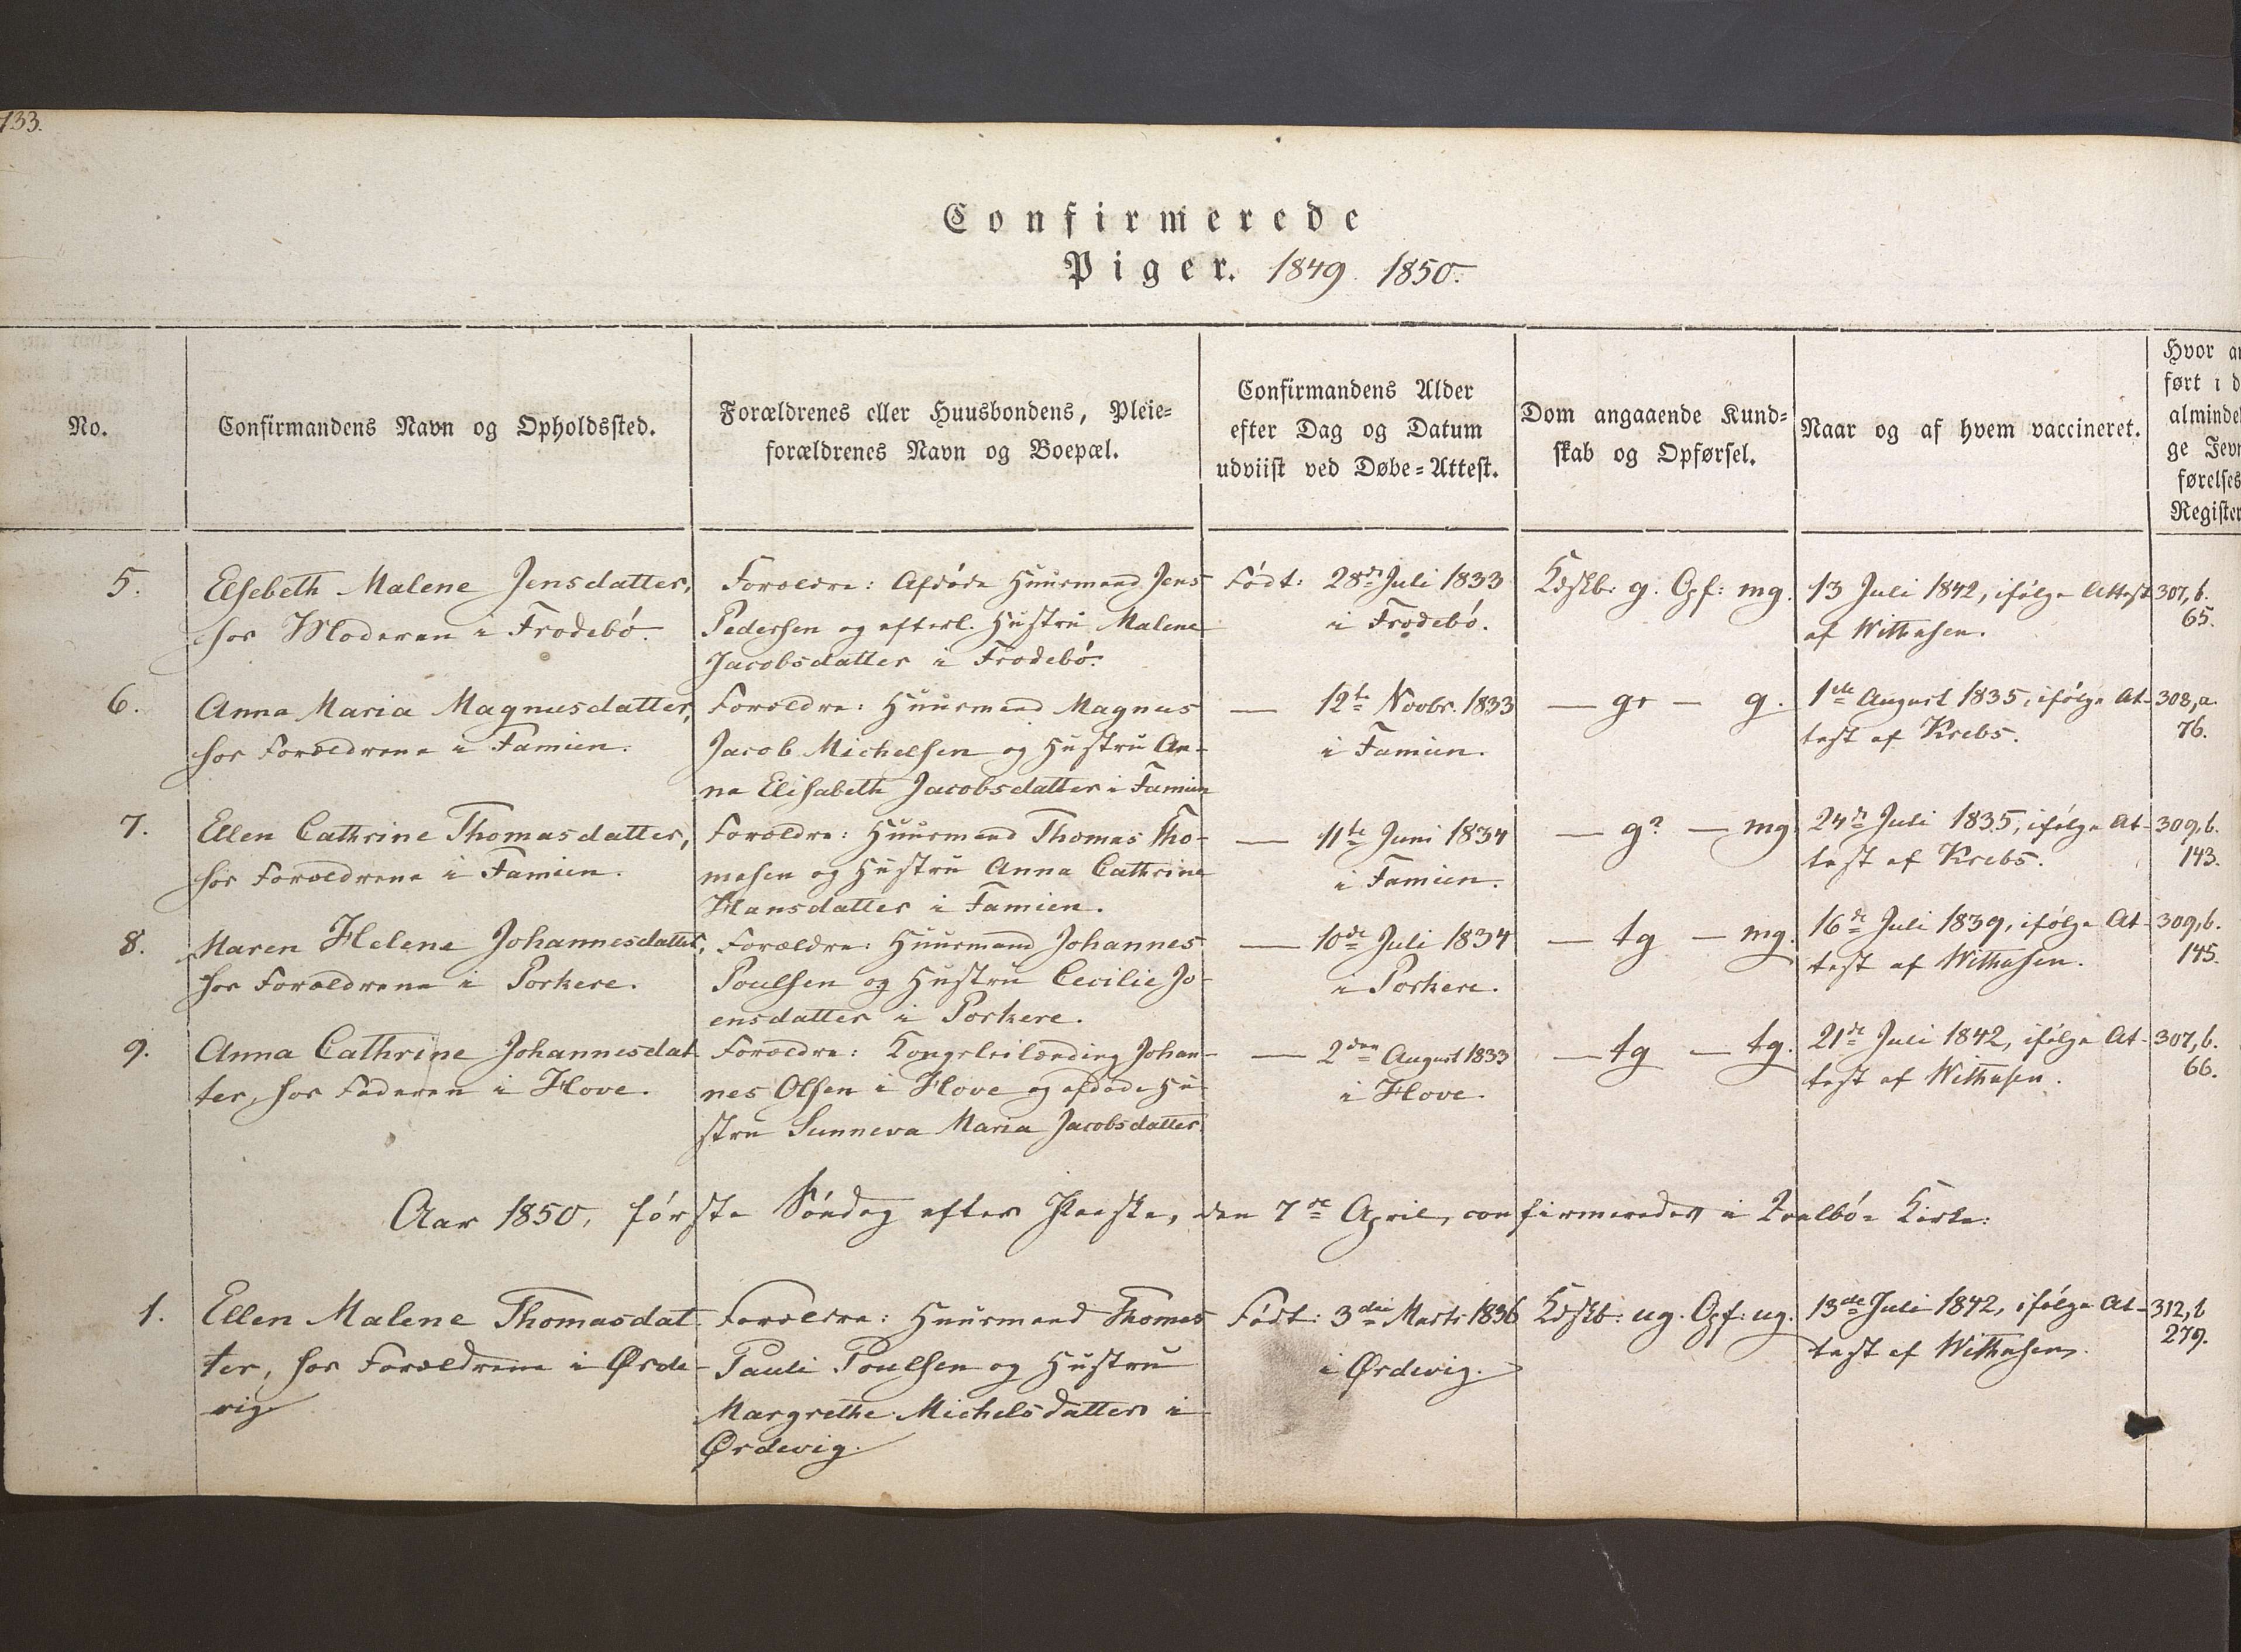 133.
Confirmerede
Piger. 1849. 1850.
No.
Confirmandens Navn og Opholdssted.
Forældrenes eller Huusbondens, Pleie=
forældrenes Navn og Boepæl.
Confirmandens Alder
efter Dag og Datum
udviist ved Døbe=Attest.
Dom angaaende Kund=
skab og Opførsel.
Naar og af hvem vaccineret.
Hvor an
ført i d
almindel
ge Jevn
førelses
Register
5.
Elsebeth Malene Jensdatter,
hos Moderen i Frodebö.
Forældre: Afdøde Huusmand Jens
Pedersen og efterl. Hustru Malene
Jacobsdatter i Frodebö.
Födt: 28de Juli 1833
i Frodebö.
Kdskb. g. Opf: mg.
13 Juli 1842, ifölge Attest
af Withusen.
307,b.
65.
6.
Anna Maria Magnusdatter,
hos Forældrene i Famien.
Forældre: Huusmand Magnus
Jacob Michelsen og Hustru An-
na Elisabeth Jacobsdatter i Famien
— 12te Novbr. 1833
i Famien.
— g+ — g.
1ste August 1835, ifölge At-
test af Krebs.
308,a.
76.
7.
Ellen Cathrine Thomasdatter,
hos Forældrene i Famien.
Forældre: Huusmand Thomas Tho-
masen og Hustru Anna Cathrine
Hansdatter i Famien.
— 11te Juni 1834
i Famien.
— g? — mg.
24de Juli 1835, ifölge At-
test af Krebs.
309,b.
143.
8.
Maren Helene Johannesdatter,
hos Forældrene i Porkere.
Forældre: Huusmand Johannes
Poulsen og Hustru Cecilie Jo-
ensdatter i Porkere.
— 10de Juli 1834
i Porkere.
— tg — mg.
16de Juli 1839, ifölge At-
test af Withusen.
309,b.
145.
9.
Anna Cathrine Johannesdat
ter, hos Faderen i Hove.
Forældre: Kongsleilænding Johan-
nes Olsen i Hove og afdøde Hu-
stru Sunneva Maria Jacobsdatter.
— 2den August 1833
i Hove.
— tg — tg.
21de Juli 1842, ifölge At-
test af Withusen.
307,b.
66.
Aar 1850, förste Söndag efter Paaske, den 7de April, confirmeredes i Qvalbö Kirke:
1.
Ellen Malene Thomasdat
ter, hos Forældrene i Ørde-
vig
Forældre: Huusmand Thomas
Pauli Poulsen og Hustru
Margrethe Michelsdatter i
Ørdevig.
Födt: 3die Marts 1836
i Ørdevig.
Kdskb: ug. Opf: ug.
13de Juli 1842, ifölge At-
test af Withusen.
312,b
279.